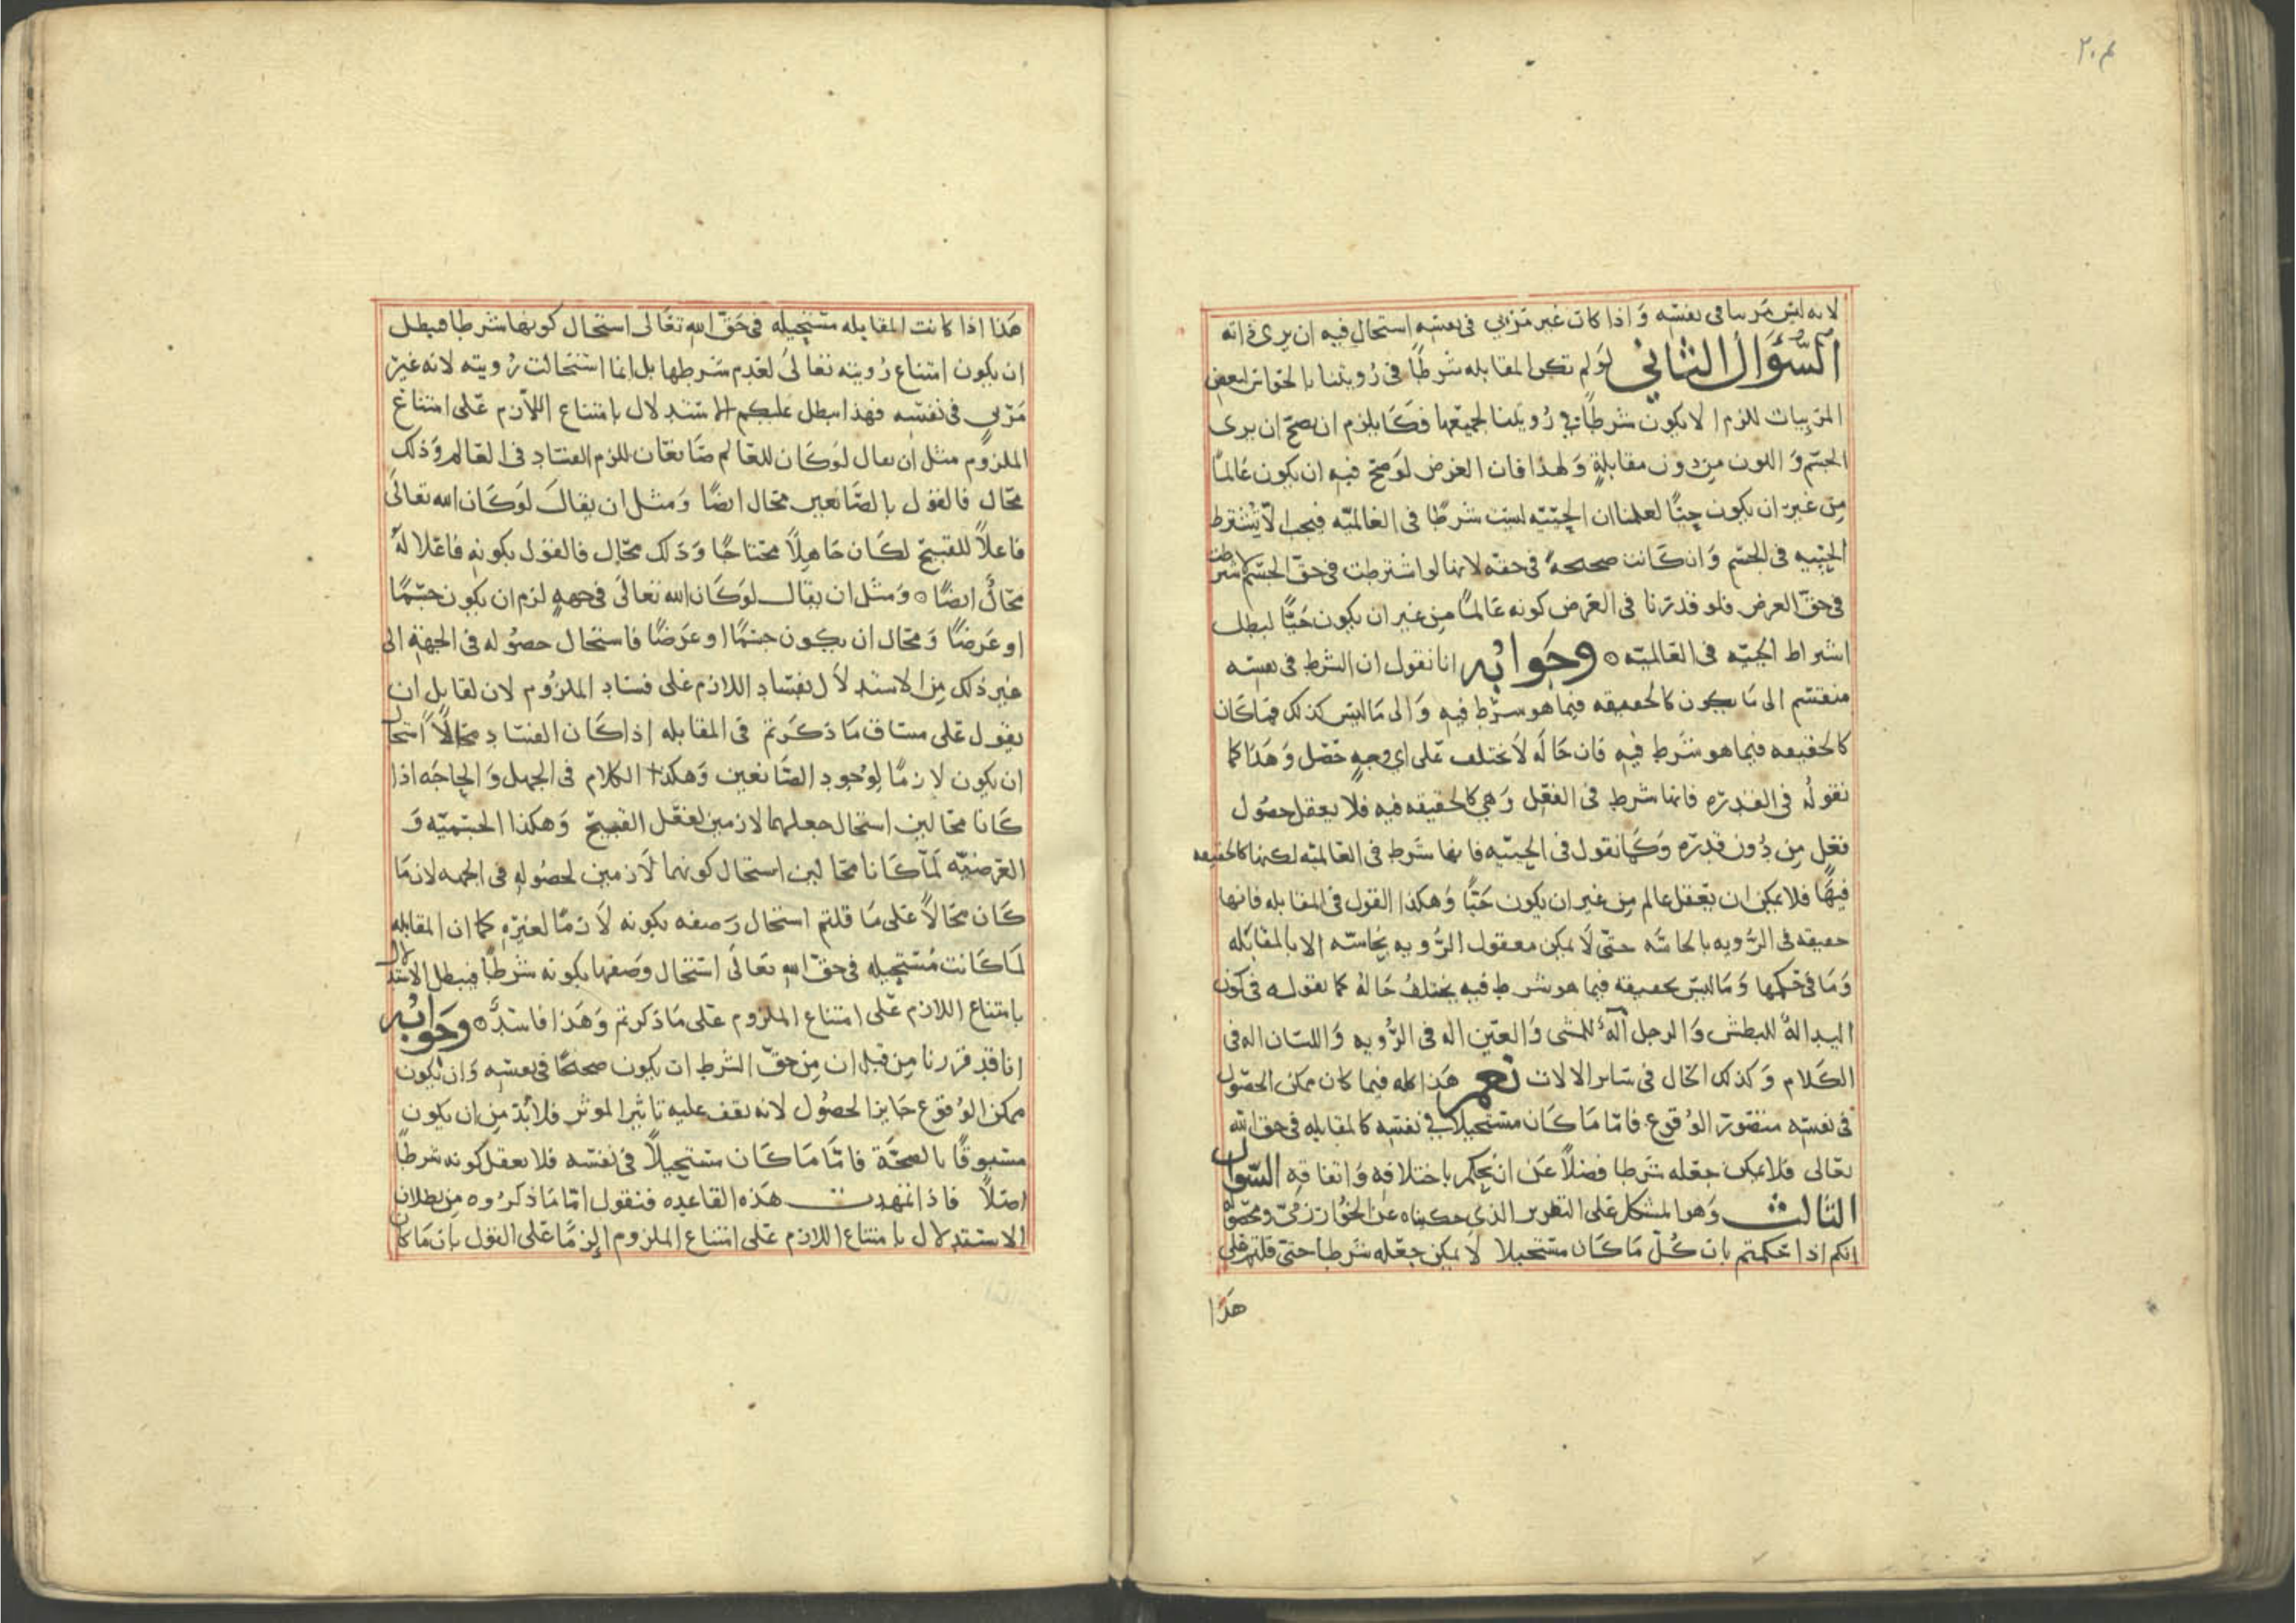 ٢٠٤
لانه ليس مرييا فى نفسه وَاذا كان غير مَرْئي فى نفسه استحال فيه ان يرى ذاته
السُّؤَالُ الثَّاني لَولم تكن المقابله شَرطًا فى رُويتنا بالحَواس لبعض
المَرْئِيات للزم الا تكون شَرطًا فى رُويتنا لجميعها فَكَا يلزم ان يصحّ ان يرى
الجسم وَاللون مِن دون مقابلةٍ وَلهذا فان العَرَض لَو صَحّ فيه ان يكون عَالماً
مِن غير ان يكون حيًّا لعلمنا ان الحيّيّه ليست شرطًا فى العَالميّه فيجب الّا يُشترط
الحيّيه فى الجسم وَان كَانت صحيحةً فى حقه لانها لو اشترطت فى حقّ الجسم لاشترطت
فى حقّ العرض فلو قدّرنا فى العَرَض كونه عَالمًا مِن غير ان يكون حَيًّا لبطل
اشتراط الحيّيه فى العَالميّه ۝ وجَوابُه انا نقول ان الشرط فى نفسه
منقسم الى مَا يكون كالحقيقه فيما هو شَرْط فيه وَالى مَا ليس كذلك فما كَان
كالحقيقه فيما هو شَرط فيه فان حَالَه لَا يختلف عَلى اي وَجهٍ حَصَل وَهَذا كما
نقولُه فى القدرَه فانها شرط فى الفعْل وَهي كالحقيقه فيه فلا يعقل حصُول
فعْل مِن دُون قدرَه وَكَما نقول فى الحيّيه فانها شَرط فى العَالميّه لكنها كالحقيقه
فيهَا فلا يمكن ان يعْقل عَالم مِن غير ان يكون حَيًّا وَهكذا القول فى المقابله فانها
حقيقه فى الرُّويه بالحاسّه حتّى لَا يمكن معقول الرُّويه بحَاسّه الا بالمقابَله
وَمَا فى حُكمها وَمَا ليسَ بحقيقه فيما هو شرط فيه يختلفُ حَالهُ كما نقوله فى كون
اليد الهً للبطش وَالرجل آلهً للمشى وَالعَين اله فى الرُّويه وَاللسَان اله فى
الكَلام وَكذلك الحَال فى سَاير الالات نعم هَذا كله فيما كان ممكن الحصُول
فى نفسه متصوّر الوُقوع فامّا مَا كَان مستحيلا فى نفسه كالمقابله فى حق الله
تعالى فلا يمكن جَعْله شَرطا فضلًا عَن ان يحكم باختلافه وَاتفاقه السّؤال
الثالث وَهو المشكل عَلى التقرير الذى حكيناه عَن الخُوارزميّ ومحصُوله
انكم اذا حَكمتم بان كُلّ مَا كَان مستحيلا لا يمكن جعْله شَرطا حتى قلتم على
هَذا
هَذا اذا كانت المقابله مستحيله فى حَقّ الله تعَالى استحال كونها شرطا فبطل
ان يكون امتناع رُويته تعَالى لعَدم شَرطها بل انما استحَالت رُويته لانه غير
مَرْئي فى نفسه فهذا يبطل عليكم الاستدلال بامتناع اللازم عَلى امتناع
الملزُوم مثل ان يقال لَو كَان للعَالم صَانعَان للزم الفسَاد فى العَالم وَذلك
محَال فالقول بالصَانعين محَال ايضًا وَمثل ان يقالَ لَو كَان الله تعَالى
فاعلاً للقبيح لكَان جَاهِلًا محتاجًا وَذلك محَال فالقول بكونه فاعلا لهُ
محَالٌ ايضًا ۝ وَمثل ان يقال لو كَان الله تعَالى فى جهةٍ لزم ان يكون جسْمًا
او عَرضًا وَمحَال ان يكون جسْمًا او عَرضًا فاستحَال حصُوله فى الجهة الى
غير ذلك مِن الاستدلَال بفسَاد اللازم على فسَاد الملزُوم لان لقايل ان
يقول عَلى مسَاق مَا ذكَرتم فى المقابله اذا كَان الفسَاد محَالًا استحَال
ان يكون لازمًا لوُجُود الصَانعين وَهكذا الكَلام فى الجهل وَالحاجَه اذا
كَانا محَالين استحال جعلهما لازمين لفعْل القبيح وَهكذا الجسْميّه وَ
العَرضيّه لَمّا كَانا محَالين استحال كونهما لَازمين لحصُوله فى الجهه لان مَا
كَان محَالاً عَلى مَا قلتم استحَال وَصفه بكونه لَازمًا لغيرِه كما ان المقابله
لمَا كَانت مُستحيله فى حقّ الله تعَالى استحَال وَصفها بكونه شَرطًا فيبطل الاستدلال
بامتناع اللازم عَلى امتناع الملزوم عَلى مَا ذكرتم وَهَذا فاسدٌ ۝ وجَوابُه
انا قد قررنا مِن قبل ان مِن حقّ الشرط ان يكون صحيحًا فى نفسه وَان يكون
ممكن الوُقوع جَايز الحصُول لانه يقف عليه تاثير الموثر فلابُدّ مِن ان يكون
مسبوقًا بالصحَّة فامَّا مَا كَان مستحيلًا فى نفسه فلا يعقل كونه شرطًا
اصلًا فاذا تمهدت هَذه القاعده فنقول امّا مَا ذكرُوه مِن بطلان
الاستدلال بامتناع اللازم عَلى امتناع الملزوم الزمًا عَلى القول بان مَا كان